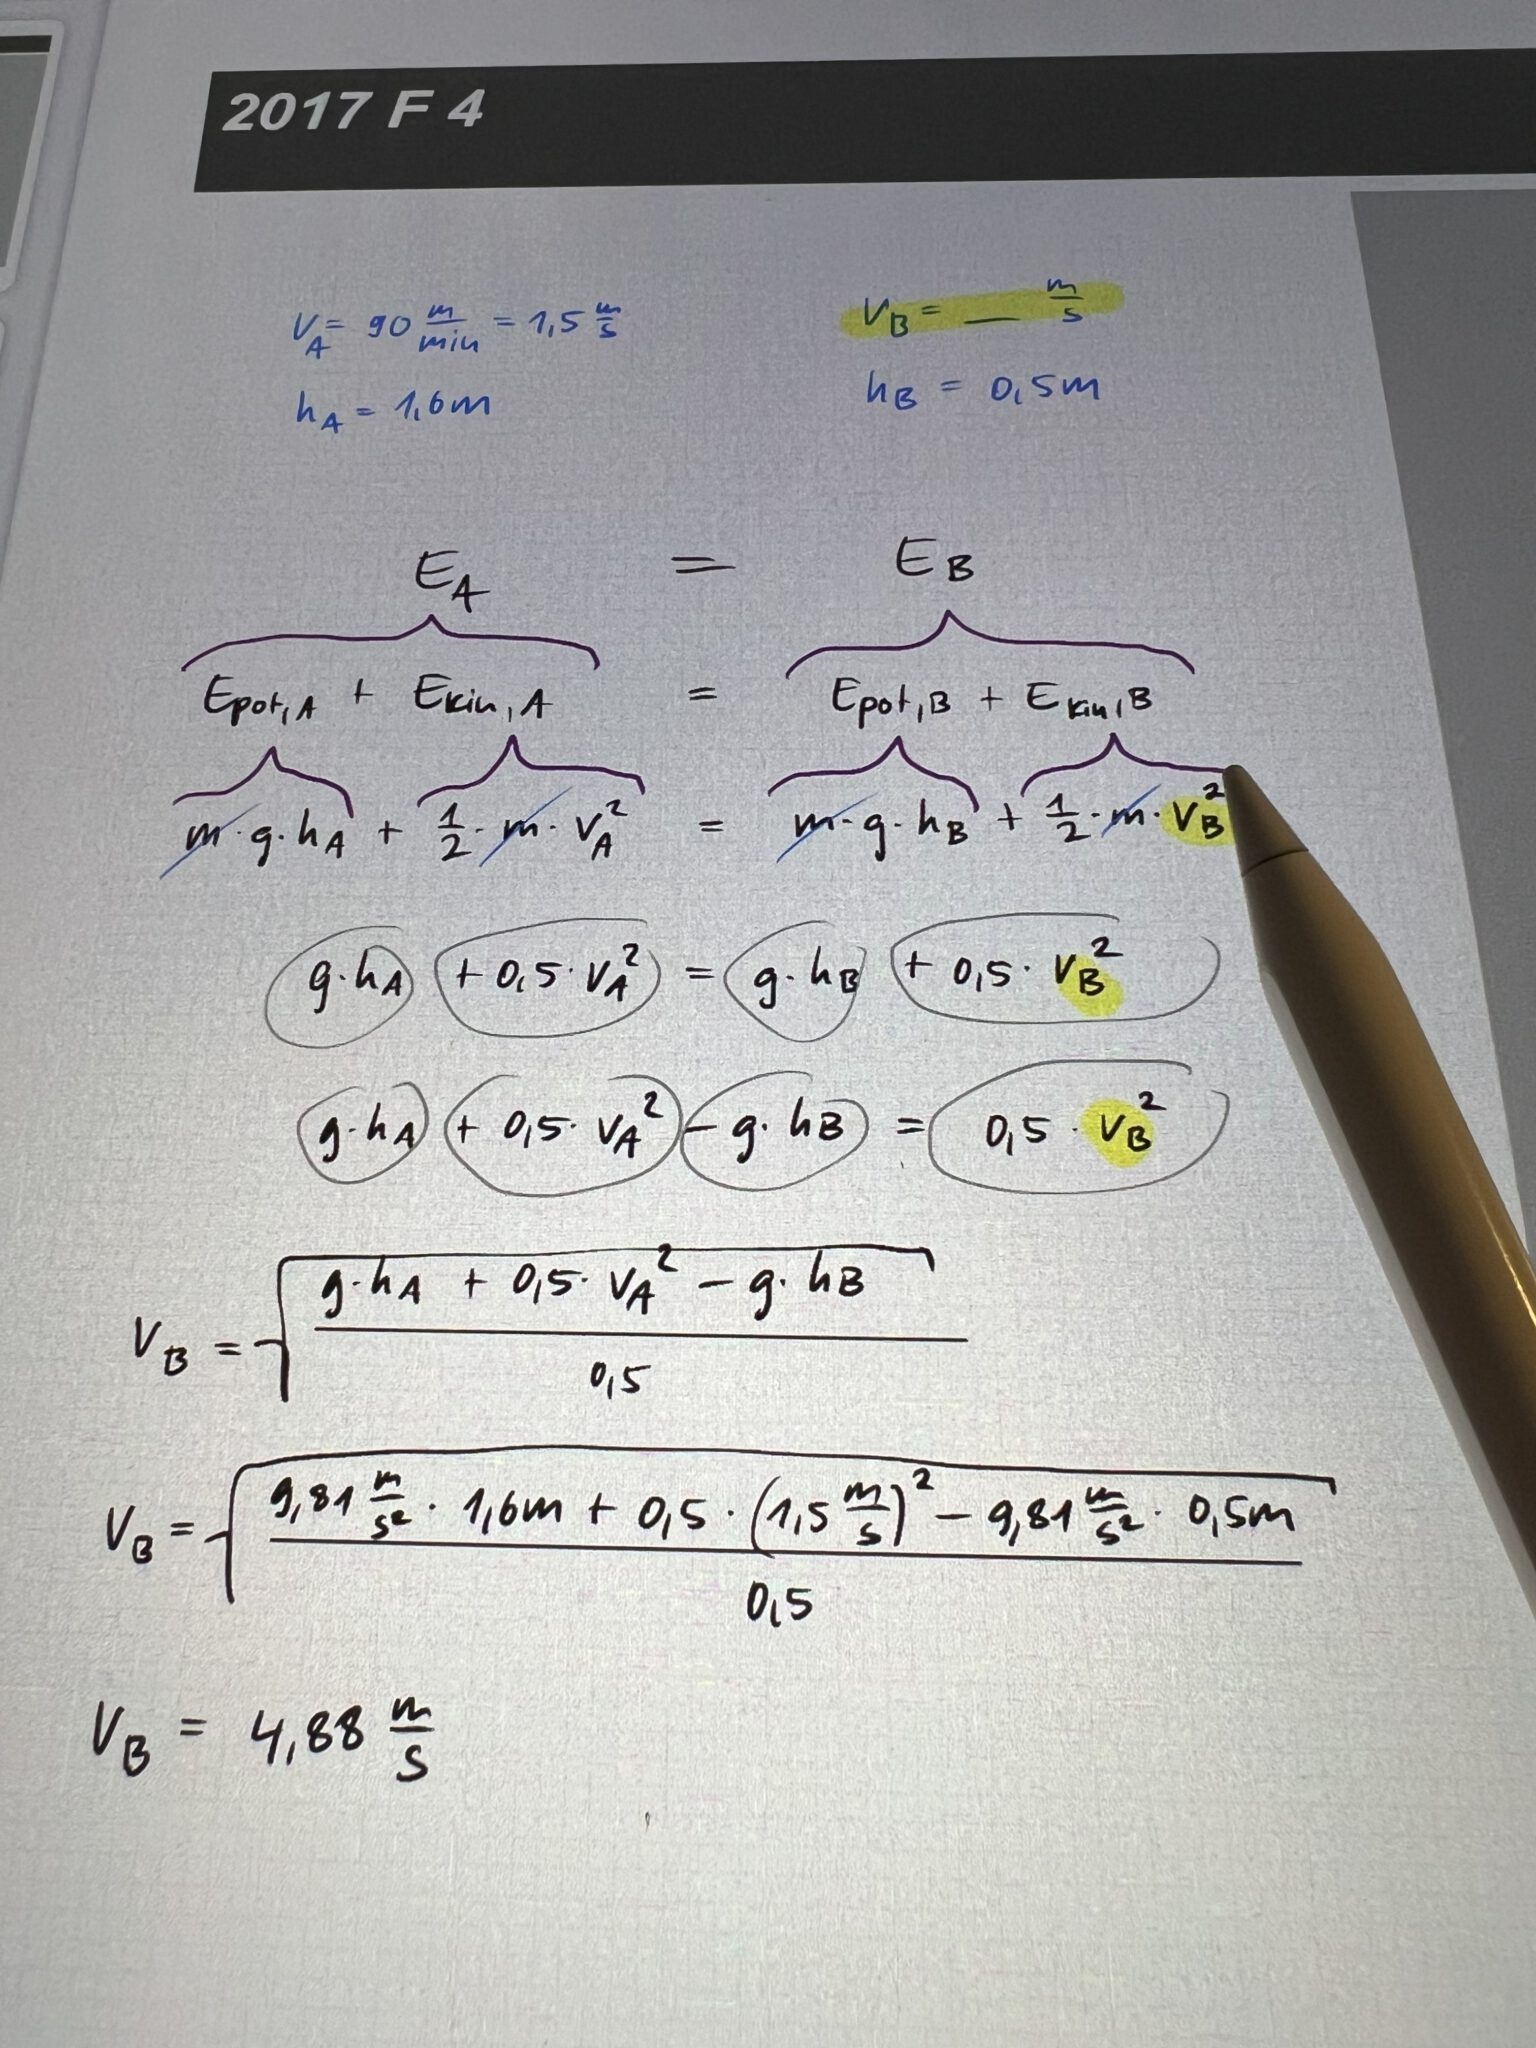 2017 F 4
V_A = 90 m/min = 1,5 m/s
V_B = __ m/s
h_A = 1,6m
h_B = 0,5m
E_A = E_B
E_pot,A + E_kin,A = E_pot,B + E_kin,B
m · g · h_A + 1/2 · m · V_A² = m · g · h_B + 1/2 · m · V_B²
g · h_A + 0,5 · V_A² = g · h_B + 0,5 · V_B²
g · h_A + 0,5 · V_A² - g · h_B = 0,5 · V_B²
V_B = √((g · h_A + 0,5 · V_A² - g · h_B) / 0,5)
V_B = √((9,81 m/s² · 1,6m + 0,5 · (1,5 m/s)² - 9,81 m/s² · 0,5m) / 0,5)
V_B = 4,88 m/s